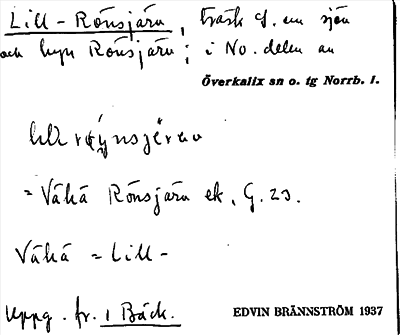 Lill-Rönsjärv, träsk o. om sjön
och byn Rönsjärv; i No. delen av
Överkalix sn o. tg Norrb. l.
= Vähä Rönsjärv ek. G. 23.
Vähä = Lill-
Uppg. fr. 1 Bäck.
EDVIN BRÄNNSTRÖM 1937